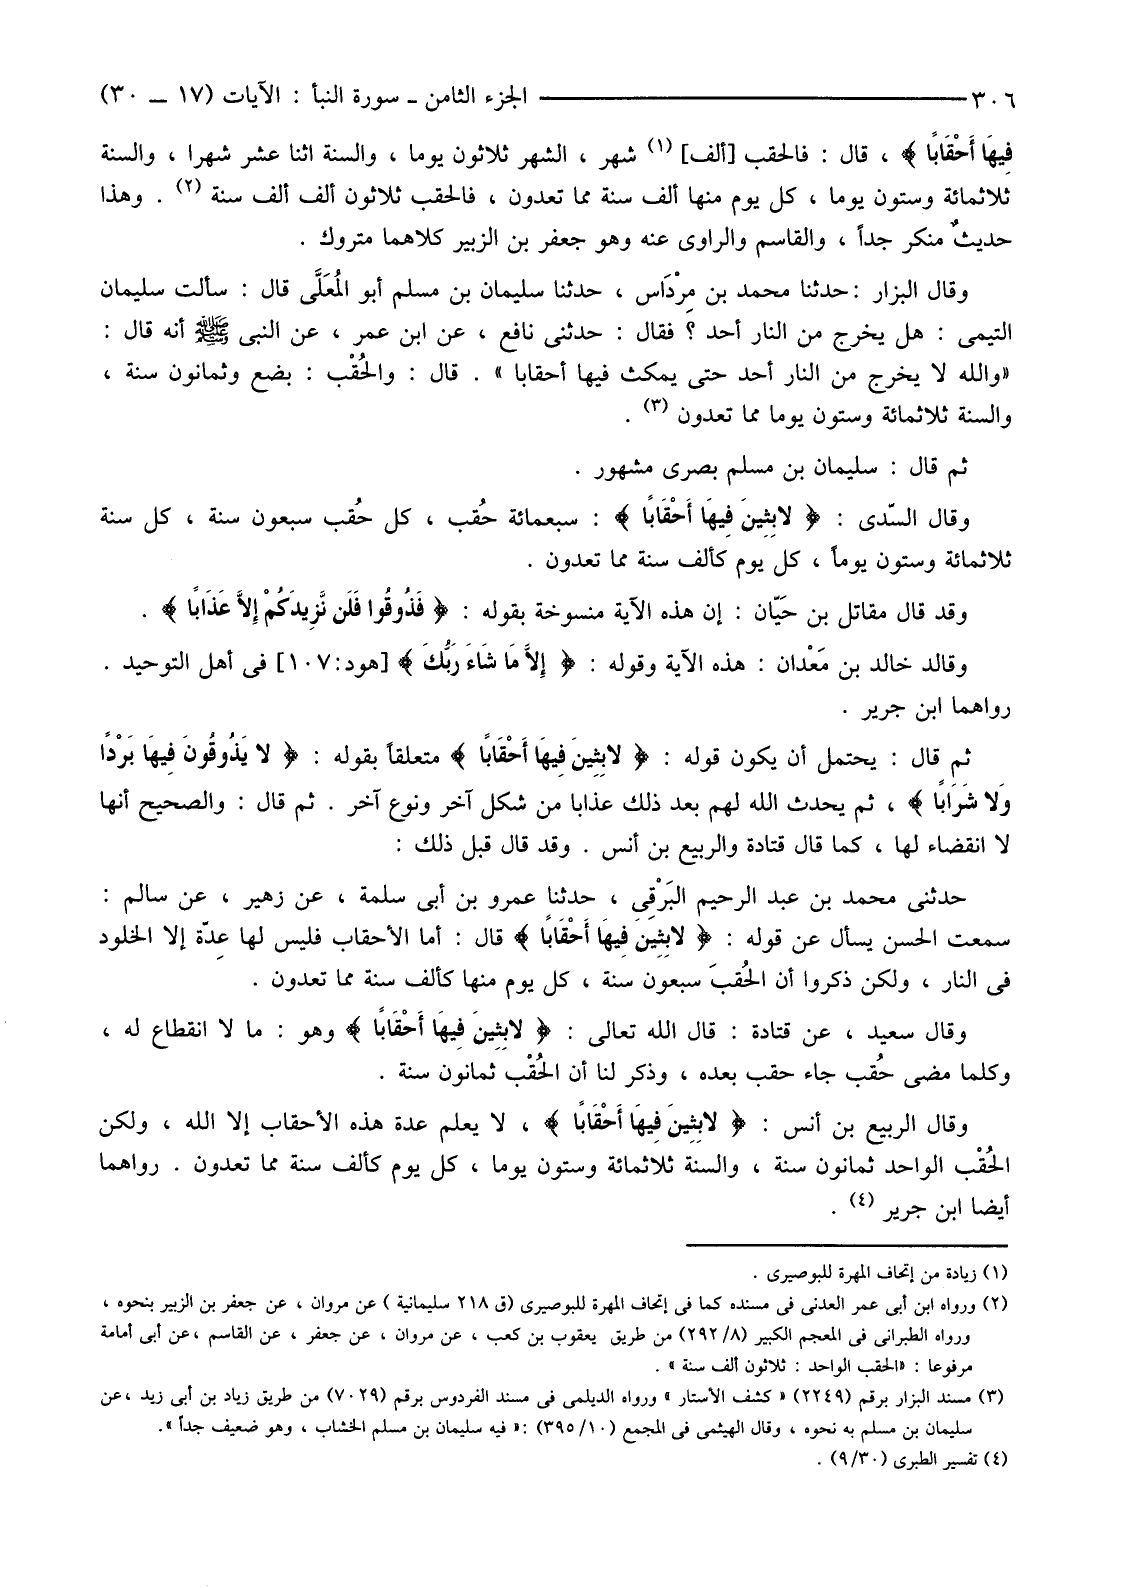 ٣٠٦ ــــــــ الجزء الثامن ـ سورة النبأ : الآيات (١٧ ــ ٣٠)
فِيهَا أَحْقَابًا ﴾ ، قال : فالحقب [ألف] (١) شهر ، الشهر ثلاثون يوما ، والسنة اثنا عشر شهرا ، والسنة
ثلاثمائة وستون يوما ، كل يوم منها ألف سنة مما تعدون ، فالحقب ثلاثون ألف ألف سنة (٢) . وهذا
حديثٌ منكر جداً ، والقاسم والراوى عنه وهو جعفر بن الزبير كلاهما متروك .
وقال البزار :حدثنا محمد بن مِرْدَاس ، حدثنا سليمان بن مسلم أبو المُعَلَّى قال : سألت سليمان
التيمى : هل يخرج من النار أحد ؟ فقال : حدثنى نافع ، عن ابن عمر ، عن النبى ﷺ أنه قال :
«والله لا يخرج من النار أحد حتى يمكث فيها أحقابا » . قال : والحُقْب : بضع وثمانون سنة ،
والسنة ثلاثمائة وستون يوما مما تعدون (٣) .
ثم قال : سليمان بن مسلم بصرى مشهور .
وقال السّدى : ﴿ لابِثِينَ فِيهَا أَحْقَابًا ﴾ : سبعمائة حُقب ، كل حُقب سبعون سنة ، كل سنة
ثلاثمائة وستون يوماً ، كل يوم كألف سنة مما تعدون .
وقد قال مقاتل بن حَيّان : إن هذه الآية منسوخة بقوله : ﴿ فَذُوقُوا فَلَن نَّزِيدَكُمْ إِلاَّ عَذَابًا ﴾ .
وقالد خالد بن مَعْدان : هذه الآية وقوله : ﴿ إِلاَّ مَا شَاءَ رَبُّكَ ﴾ [هود:١٠٧] فى أهل التوحيد .
رواهما ابن جرير .
ثم قال : يحتمل أن يكون قوله : ﴿ لابِثِينَ فِيهَا أَحْقَابًا ﴾ متعلقاً بقوله : ﴿ لا يَذُوقُونَ فِيهَا بَرْدًا
وَلا شَرَابًا ﴾ ، ثم يحدث الله لهم بعد ذلك عذابا من شكل آخر ونوع آخر . ثم قال : والصحيح أنها
لا انقضاء لها ، كما قال قتادة والربيع بن أنس . وقد قال قبل ذلك :
حدثنى محمد بن عبد الرحيم البَرْقِى ، حدثنا عمرو بن أبى سلمة ، عن زهير ، عن سالم :
سمعت الحسن يسأل عن قوله : ﴿ لابِثِينَ فِيهَا أَحْقَابًا ﴾ قال : أما الأحقاب فليس لها عِدّة إلا الخلود
فى النار ، ولكن ذكروا أن الحُقبَ سبعون سنة ، كل يوم منها كألف سنة مما تعدون .
وقال سعيد ، عن قتادة : قال الله تعالى : ﴿ لابِثِينَ فِيهَا أَحْقَابًا ﴾ وهو : ما لا انقطاع له ،
وكلما مضى حُقب جاء حقب بعده ، وذكر لنا أن الحُقْب ثمانون سنة .
وقال الربيع بن أنس : ﴿ لابِثِينَ فِيهَا أَحْقَابًا ﴾ ، لا يعلم عدة هذه الأحقاب إلا الله ، ولكن
الحُقْب الواحد ثمانون سنة ، والسنة ثلاثمائة وستون يوما ، كل يوم كألف سنة مما تعدون . رواهما
أيضا ابن جرير (٤) .
(١) زيادة من إتحاف المهرة للبوصيرى .
(٢) ورواه ابن أبى عمر العدنى فى مسنده كما فى إتحاف المهرة للبوصيرى (ق ٢١٨ سليمانية ) عن مروان ، عن جعفر بن الزبير بنحوه ،
ورواه الطبرانى فى المعجم الكبير (٨/ ٢٩٢) من طريق يعقوب بن كعب ، عن مروان ، عن جعفر ، عن القاسم ،عن أبى أمامة
مرفوعا : «الحقب الواحد : ثلاثون ألف سنة » .
(٣) مسند البزار برقم (٢٢٤٩) « كشف الأستار » ورواه الديلمى فى مسند الفردوس برقم (٧٠٢٩) من طريق زياد بن أبى زيد ،عن
سليمان بن مسلم به نحوه ، وقال الهيثمى فى المجمع (١٠/ ٣٩٥) :« فيه سليمان بن مسلم الخشاب ، وهو ضعيف جداً ».
(٤) تفسير الطبرى (٣٠/ ٩) .